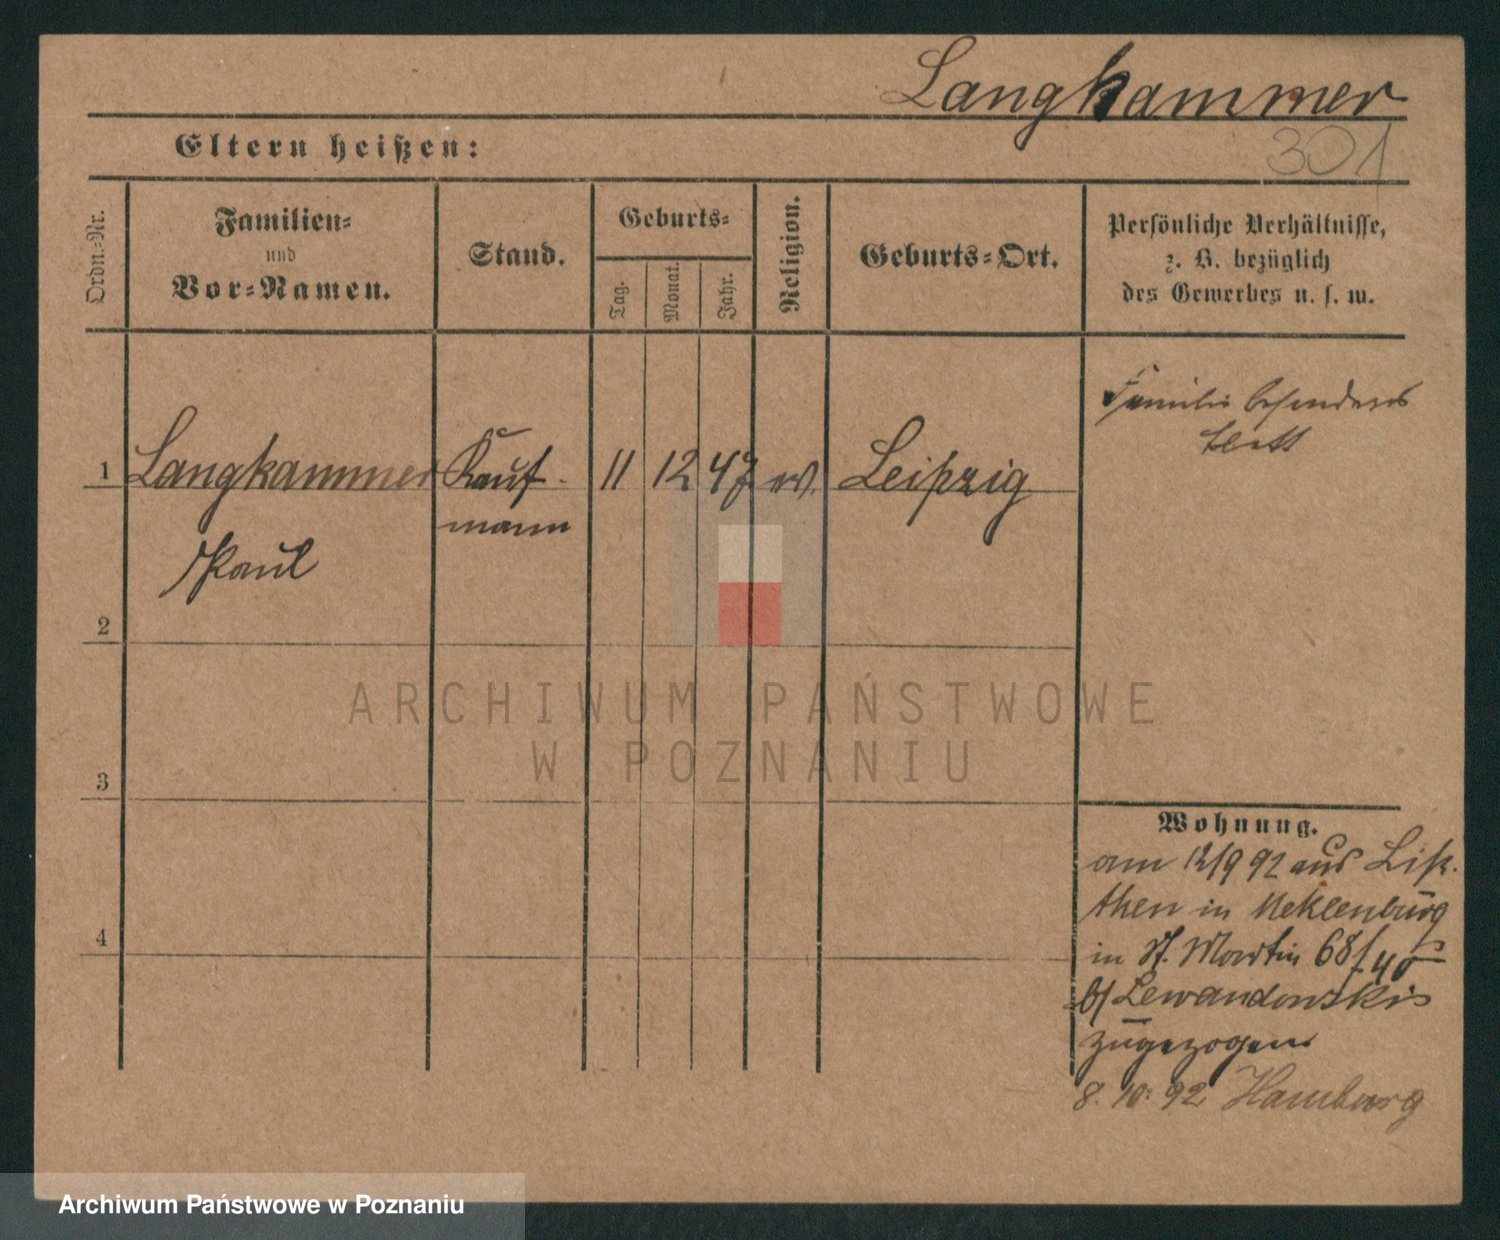 Langkammer
301
Eltern heißen:
Ordn.-Nr.
Familien-
und
Vor-Namen.
Stand.
Geburts-
Tag.
Monat.
Jahr.
Religion.
Geburts-Ort.
Persönliche Verhältnisse,
z. B. bezüglich
des Gewerbes u. s. w.
Familie besonderes
blatt
1 Langkammer Kauf- 11 12 47 ev. Leipzig
mann
Paul
2
3
4
ARCHIWUM PAŃSTWOWE
W POZNANIU
Wohnung.
am 12/9 92 aus
then in Meklenburg
in St. Martin 68/40
b/ Lewandowski
zugezogen
8. 10. 92 Hamburg
Archiwum Państwowe w Poznaniu